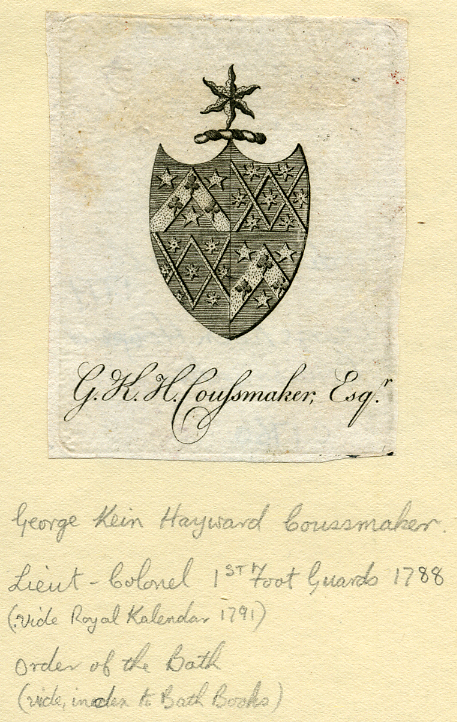 G. K. H. Coussmaker, Esq.r
George Kein Hayward Coussmaker.
Lieut-Colonel 1ST Foot Guards 1788
(vide Royal Kalendar 1791)
Order of the Bath
(vide, index to Bath Books)